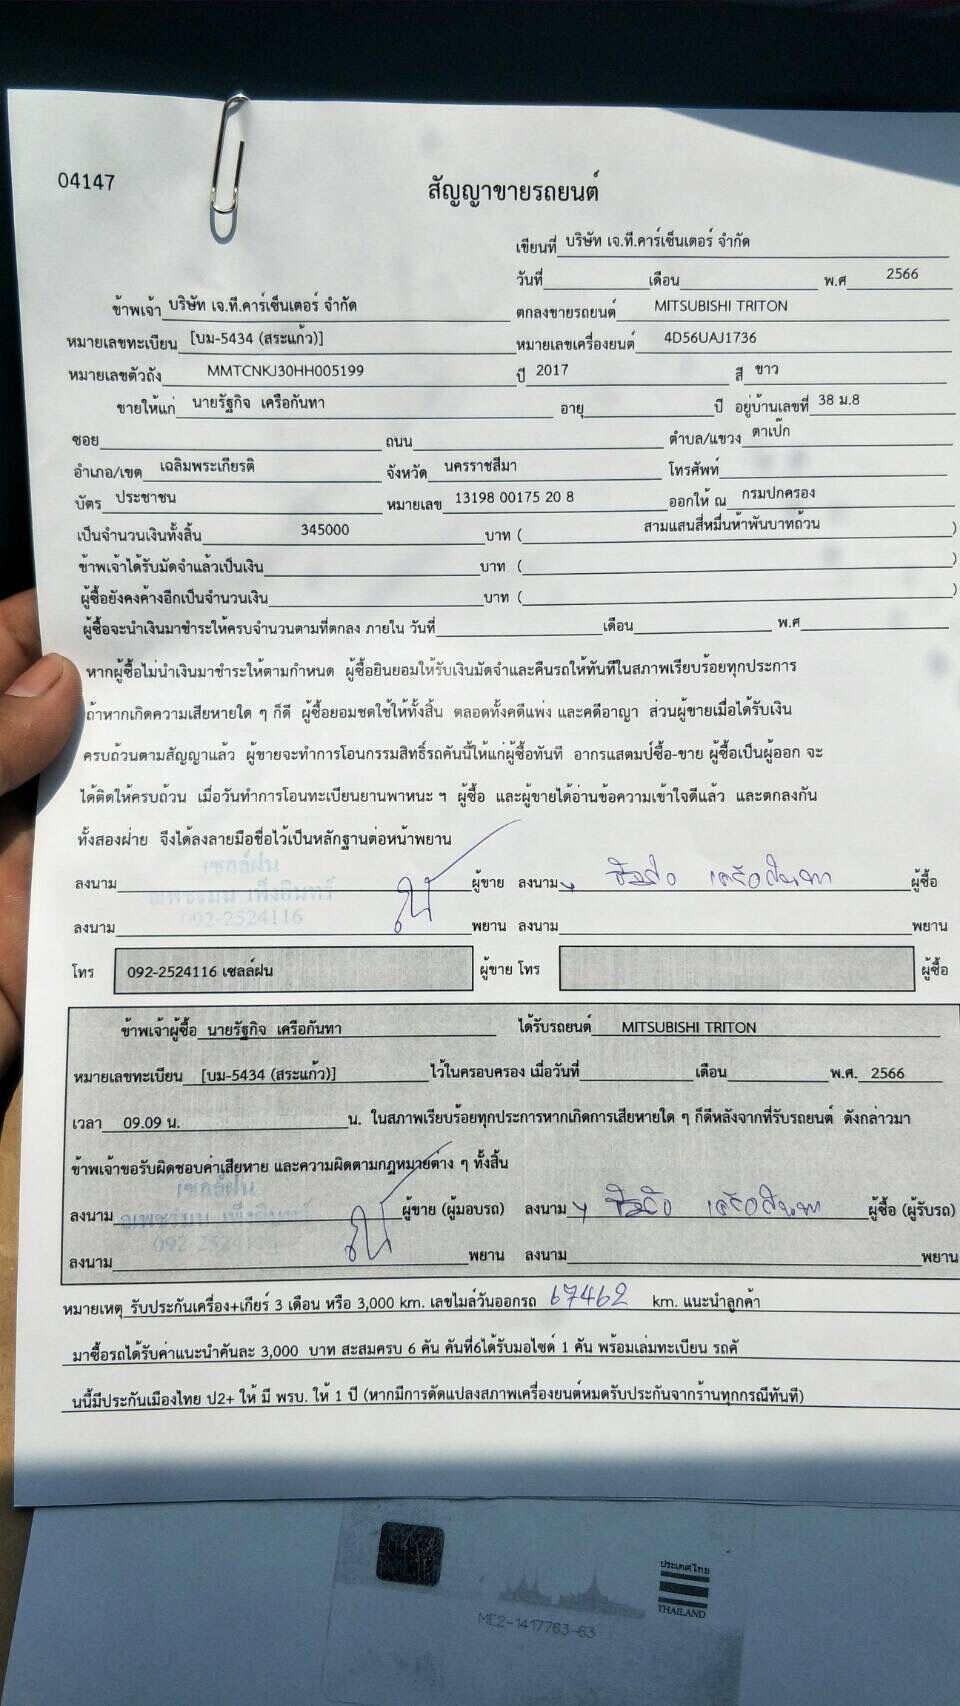 04147
สัญญาขายรถยนต์
เขียนที่ บริษัท เจ.ที.คาร์เซ็นเตอร์ จำกัด
วันที่ เดือน พ.ศ 2566
ข้าพเจ้า บริษัท เจ.ที.คาร์เซ็นเตอร์ จำกัด ตกลงขายรถยนต์ MITSUBISHI TRITON
หมายเลขทะเบียน [บม-5434 (สระแก้ว)] หมายเลขเครื่องยนต์ 4D56UAJ1736
หมายเลขตัวถัง MMTCNKJ30HH005199 ปี 2017 สี ขาว
ขายให้แก่ นายรัฐกิจ เครือกันทา อายุ ปี อยู่บ้านเลขที่ 38 ม.8
ซอย ถนน ตำบล/แขวง ตาเป๊ก
อำเภอ/เขต เฉลิมพระเกียรติ จังหวัด นครราชสีมา โทรศัพท์
บัตร ประชาชน หมายเลข 13198 00175 20 8 ออกให้ ณ กรมปกครอง
เป็นจำนวนเงินทั้งสิ้น 345000 บาท ( สามแสนสี่หมื่นห้าพันบาทถ้วน )
ข้าพเจ้าได้รับมัดจำแล้วเป็นเงิน บาท ( )
ผู้ซื้อยังคงค้างอีกเป็นจำนวนเงิน บาท ( )
ผู้ซื้อจะนำเงินมาชำระให้ครบจำนวนตามที่ตกลง ภายใน วันที่ เดือน พ.ศ
หากผู้ซื้อไม่นำเงินมาชำระให้ตามกำหนด ผู้ซื้อยินยอมให้รับเงินมัดจำและคืนรถให้ทันทีในสภาพเรียบร้อยทุกประการ
ถ้าหากเกิดความเสียหายใด ๆ ก็ดี ผู้ซื้อยอมชดใช้ให้ทั้งสิ้น ตลอดทั้งคดีแพ่ง และคดีอาญา ส่วนผู้ขายเมื่อได้รับเงิน
ครบถ้วนตามสัญญาแล้ว ผู้ขายจะทำการโอนกรรมสิทธิ์รถคันนี้ให้แก่ผู้ซื้อทันที อากรแสตมป์ซื้อ-ขาย ผู้ซื้อเป็นผู้ออก จะ
ได้ติดให้ครบถ้วน เมื่อวันทำการโอนทะเบียนยานพาหนะ ฯ ผู้ซื้อ และผู้ขายได้อ่านข้อความเข้าใจดีแล้ว และตกลงกัน
ทั้งสองฝ่าย จึงได้ลงลายมือชื่อไว้เป็นหลักฐานต่อหน้าพยาน
เซลล์ฝน
ลงนาม ผู้ขาย ลงนาม ผู้ซื้อ
เพ็งอินทร์
092-2524116
ลงนาม พยาน ลงนาม พยาน
โทร 092-2524116 เซลล์ฝน ผู้ขาย โทร ผู้ซื้อ
ข้าพเจ้าผู้ซื้อ นายรัฐกิจ เครือกันทา ได้รับรถยนต์ MITSUBISHI TRITON
หมายเลขทะเบียน [บม-5434 (สระแก้ว)] ไว้ในครอบครอง เมื่อวันที่ เดือน พ.ศ. 2566
เวลา 09.09 น. น. ในสภาพเรียบร้อยทุกประการหากเกิดการเสียหายใด ๆ ก็ดีหลังจากที่รับรถยนต์ ดังกล่าวมา
ข้าพเจ้าขอรับผิดชอบค่าเสียหาย และความผิดตามกฎหมายต่าง ๆ ทั้งสิ้น
เซลล์ฝน
ลงนาม ผู้ขาย (ผู้มอบรถ) ลงนาม ผู้ซื้อ (ผู้รับรถ)
เพ็งอินทร์
ลงนาม พยาน ลงนาม พยาน
หมายเหตุ รับประกันเครื่อง+เกียร์ 3 เดือน หรือ 3,000 km. เลขไมล์วันออกรถ 67462 km. แนะนำลูกค้า
มาซื้อรถได้รับค่าแนะนำคันละ 3,000 บาท สะสมครบ 6 คัน คันที่6ได้รับมอไซด์ 1 คัน พร้อมเล่มทะเบียน รถคั
นนี้มีประกันเมืองไทย ป2+ ให้ มี พรบ. ให้ 1 ปี (หากมีการดัดแปลงสภาพเครื่องยนต์หมดรับประกันจากร้านทุกกรณีทันที)
ประเทศไทย
THAILAND
ME2-1417763-63